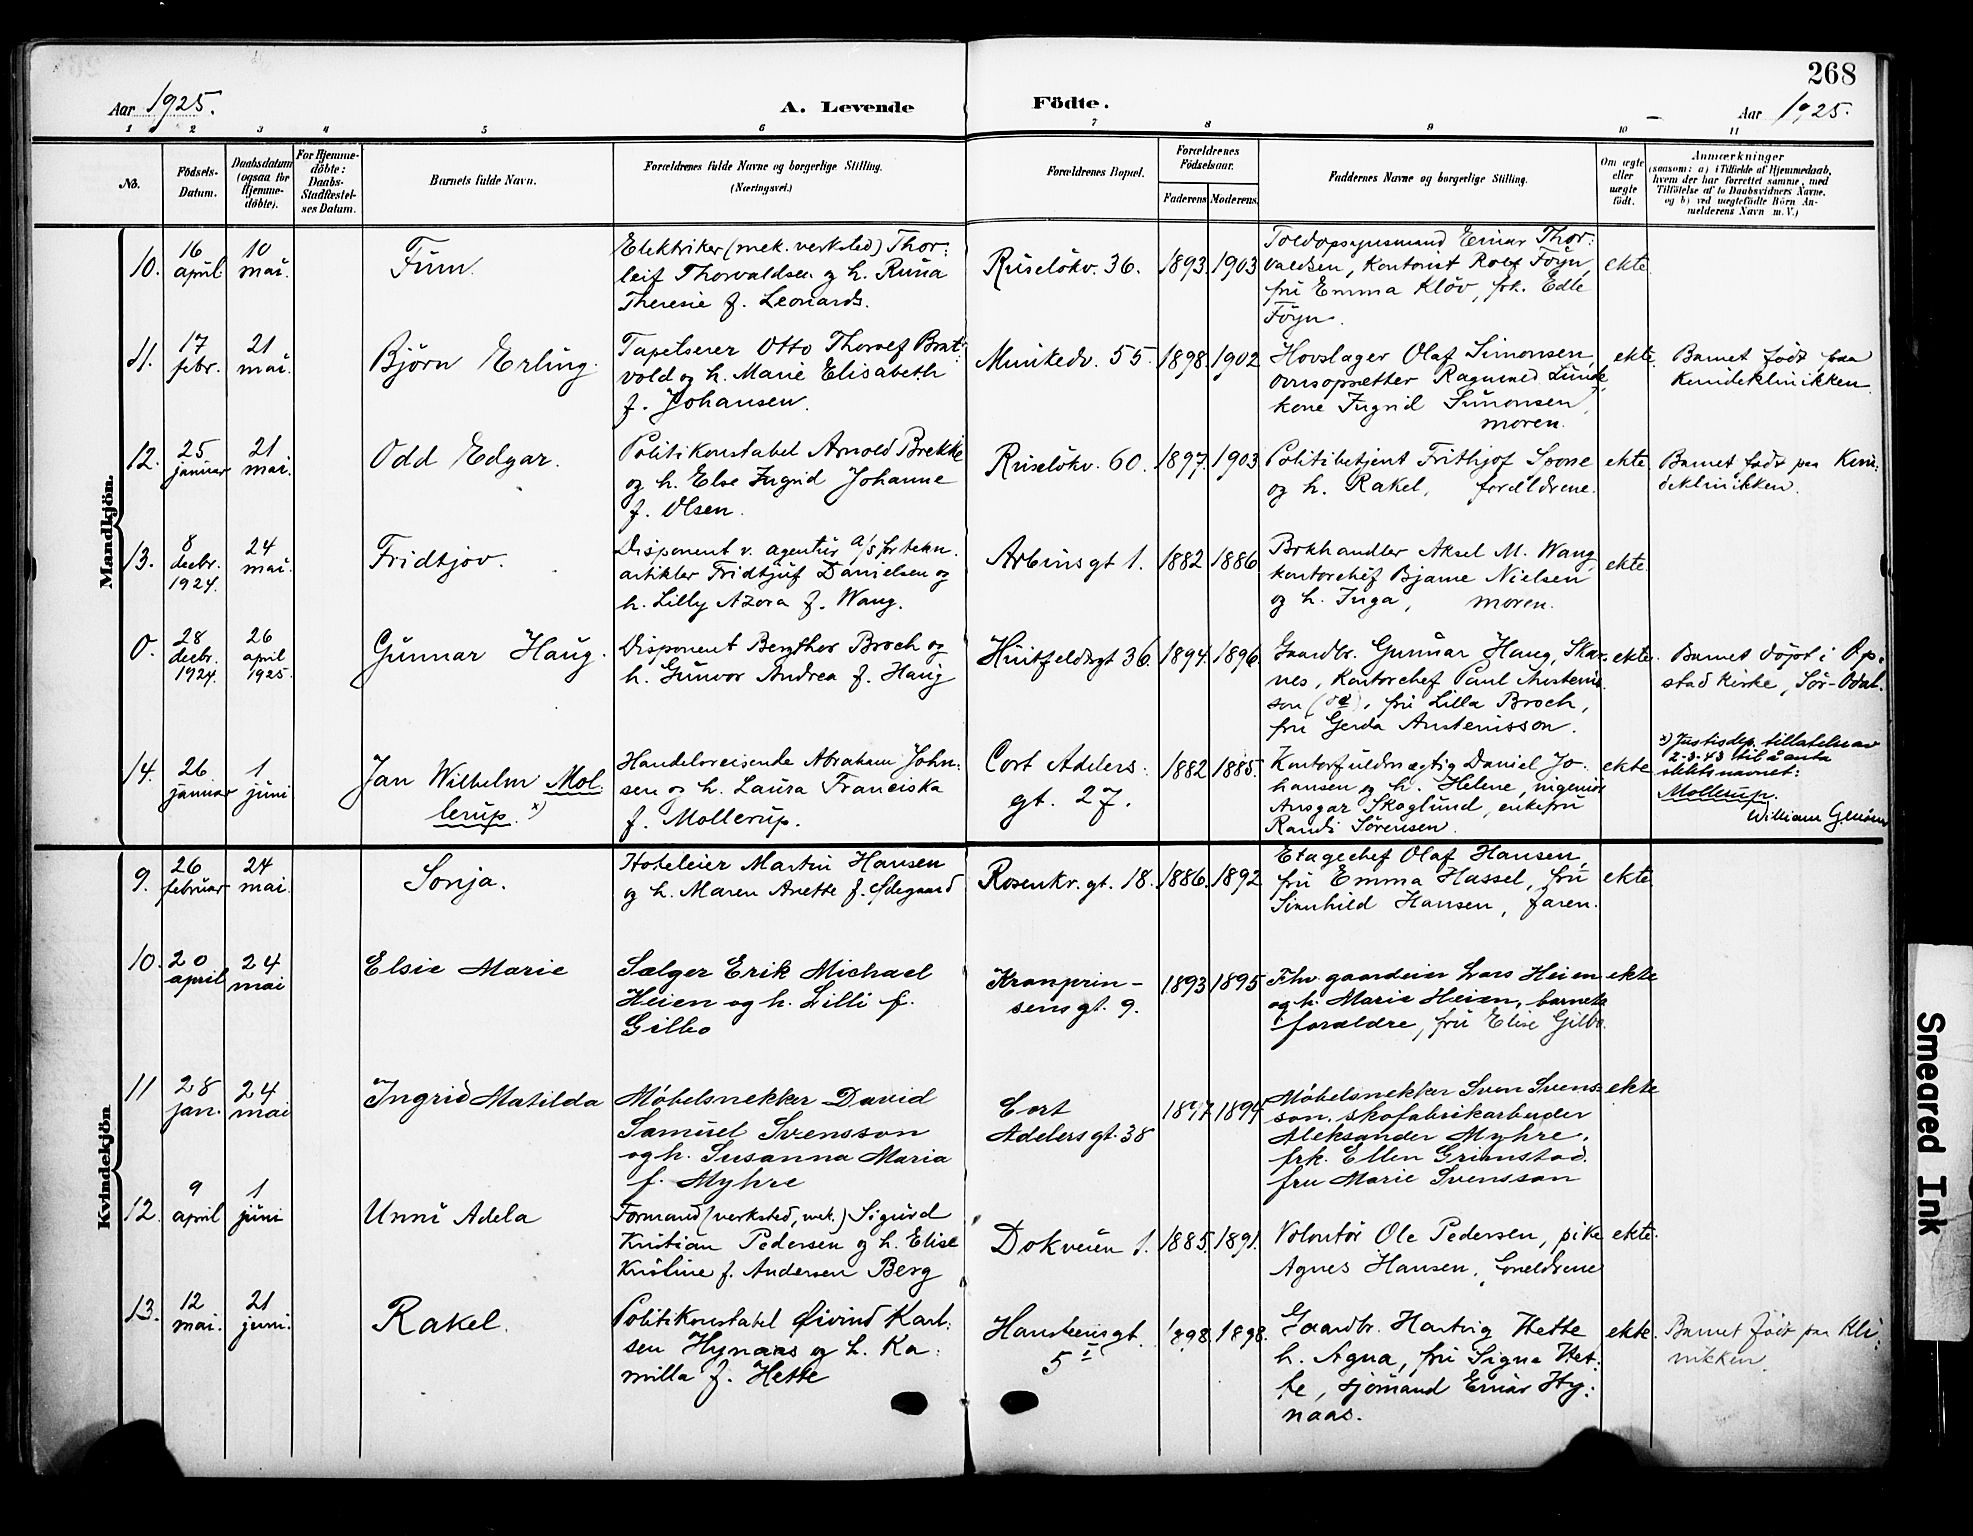 268
Aar 1925.
A. Levende
Födte.
Aar 1925.
1 2 3 4 5 6 7 8 9 10 11
No.
Födsels-
Datum.
Daabsdatum
(ogsaa for
Hjemme-
döbte).
For Hjemme-
döbte:
Daabs-
Stadfæstel-
ses Datum.
Barnets fulde Navn.
Forældrenes fulde Navne og borgerlige Stilling.
(Næringsvei.)
Forældrenes Bopæl.
Forældrenes
Födselsaar.
Faderens
Moderens
Faddernes Navne og borgerlige Stilling.
Om ægte
eller
uægte
födt.
Anmærkninger
(saasom: a) i Tilfælde af Hjemmedaab,
hvem der har forrettet samme, med
Tilföielse af to Daabsvidners Navne,
og b) ved uægtefödte Börn An-
melderens Navn m. V.)
Mandkjön.
10.
16
april
10
mai.
Finn.
Elektriker (mek. verksted) Thor-
leif Thorvaldsen og h. Runa
Theresie f. Leonards.
Ruselökv. 36.
1893.
1903
Toldopsynsmand Einar Thor-
valdsen, Kontorist Rolf Föyn,
fru Emma Klöv, frk. Edle
Föyn.
ekte.
11.
17
febr.
21
mai.
Björn Erling.
Tapetserer Otto Thoralf Brat-
vold og h. Marie Elisabeth
f. Johansen.
Munkedv. 55.
1898.
1902
Hovslager Olaf Simonsen,
ovnsopsætter Ragnvald Lunde,
kone Ingrid Simonsen,
moren.
ekte.
Barnet födt paa
Kvindeklinikken.
12.
25
januar
21
mai.
Odd Edgar.
Politikonstabel Arnold Brekke
og h. Else Ingrid Johanne
f. Olsen.
Ruselökv. 60.
1897.
1903
Politibetjent Frithjof
og h. Rakel, forældrene.
ekte.
Barnet födt paa Kvin-
deklinikken.
13.
8
decbr.
1924.
24
mai.
Fridtjov.
Disponent v. agentur a/s for tekn.
artikler Fridtjuf Danielsen og
h. Lilly Azora f. Wang.
Arbinsgt 1.
1882
1886
Bokhandler Aksel M. Wang,
kontorchef Bjarne Nielsen
og h. Inga, moren.
ekte.
0.
28
decbr.
1924.
26
april
1925.
Gunnar Haug.
Disponent Bergthor Broch og
h. Gunvor Andrea f. Haug
Huitfeldtsgt 36.
1894.
1896.
Gaardbr. Gunnar Haug, Skar-
nes, Kontorchef Paul Austenis-
son, fru Lilla Broch,
fru Gerda Austenisson.
ekte.
Barnet döpt i Op-
stad kirke, Sör-Odal.
14.
26
januar
1
juni
Jan Wilhelm Mol-
lerup. x)
Handelsreisende Abraham John-
sen og h. Laura Franciska
f. Mollerup.
Cort Adelers-
gt. 27.
1882
1885.
Kontorfuldmægtig Daniel Jo-
hansen og h. Helene, ingeniör
Ansgar Skoglund, enkefru
Randi Sörensen.
ekte
x) Justisdep. tillatelse av
2-3-43 til å anta
slektsnavnet:
Mollerup.
William
Kvindekjön
9.
26
februar
24
mai.
Sonja.
Hoteleier Martin Hansen
og h. Maren Anette f. Ödegaard
Rosenkr. gt. 18.
1886.
1892
Etagechef Olaf Hansen,
fru Emma Hassel, fru
Sinnhild Hansen, faren.
ekte
10.
20
april
24
mai
Elsie Marie
Sælger Erik Michael
Heien og h. Lilli f.
Gilbo
Kronprin-
sensgt. 9.
1893
1895
Fhv. gaardeier Lars Heien
og h. Marie Heien, barnets
forældre, fru Elise Gilbo.
ekte
11
28
jan.
24
mai
Ingrid Matilda
Møbelsnekker David
Samuel Svensson
og h. Susanna Maria
f. Myhre
Cort
Adelersgt. 38
1897
1894
Møbelsnekker Sven Svens-
son, skofabrikarbeider
Aleksander Myhre,
frk. Ellen Grimstad.
fru Marie Svensson
ekte
12.
9
april
1
juni
Unni Adela
Formand (verksted, mek.) Sigurd
Kristian Pedersen og h. Elise
Kristine f. Andersen Berg
Dokveien 1.
1885.
1891.
Volontör Ole Pedersen, pike
Agnes Hansen, foreldrene
ekte.
13.
12
mai.
21
juni.
Rakel.
Politikonstabel Øivind Karl-
sen Hynaas og h. Ka-
milla f. Hette
Hansteensgt.
5 I
1898.
1898.
Gaardbr. Hartvig Hette
h. Agna, fru Signe Het-
te, sjömand Einar Hy-
naas.
ekte.
Barnet födt paa Kli-
nikken.
Smeared Ink